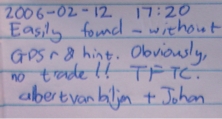 2006-02-12 17:20
Easily found - without
GPSr & hint. Obviously,
no trade!! TFTC.
albertvanbiljn + Johan